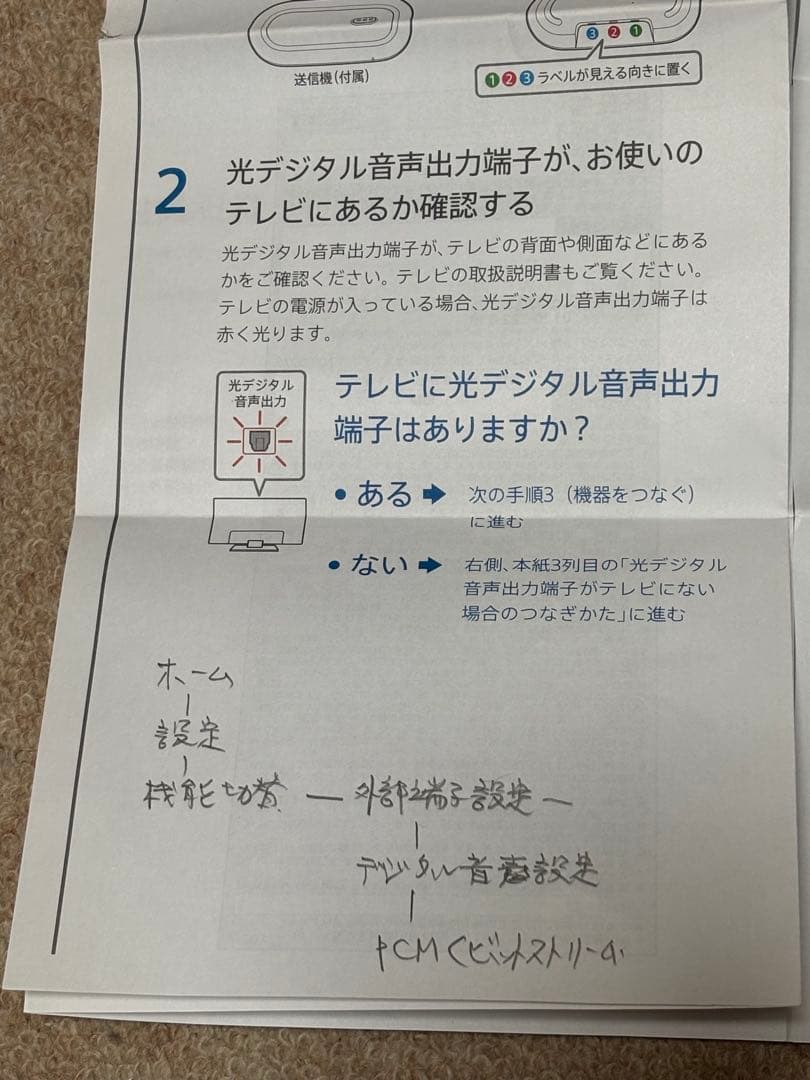 送信機(付属)
3 2 1
1 2 3 ラベルが見える向きに置く
2
光デジタル音声出力端子が、お使いの
テレビにあるか確認する
光デジタル音声出力端子が、テレビの背面や側面などにある
かをご確認ください。テレビの取扱説明書もご覧ください。
テレビの電源が入っている場合、光デジタル音声出力端子は
赤く光ります。
光デジタル
音声出力
テレビに光デジタル音声出力
端子はありますか?
• ある ➡ 次の手順3(機器をつなぐ)
に進む
• ない ➡ 右側、本紙3列目の「光デジタル
音声出力端子がテレビにない
場合のつなぎかた」に進む
ホーム
設定
機能切替 — 外部端子設定 —
デジタル音声設定
PCM くビットストリーム